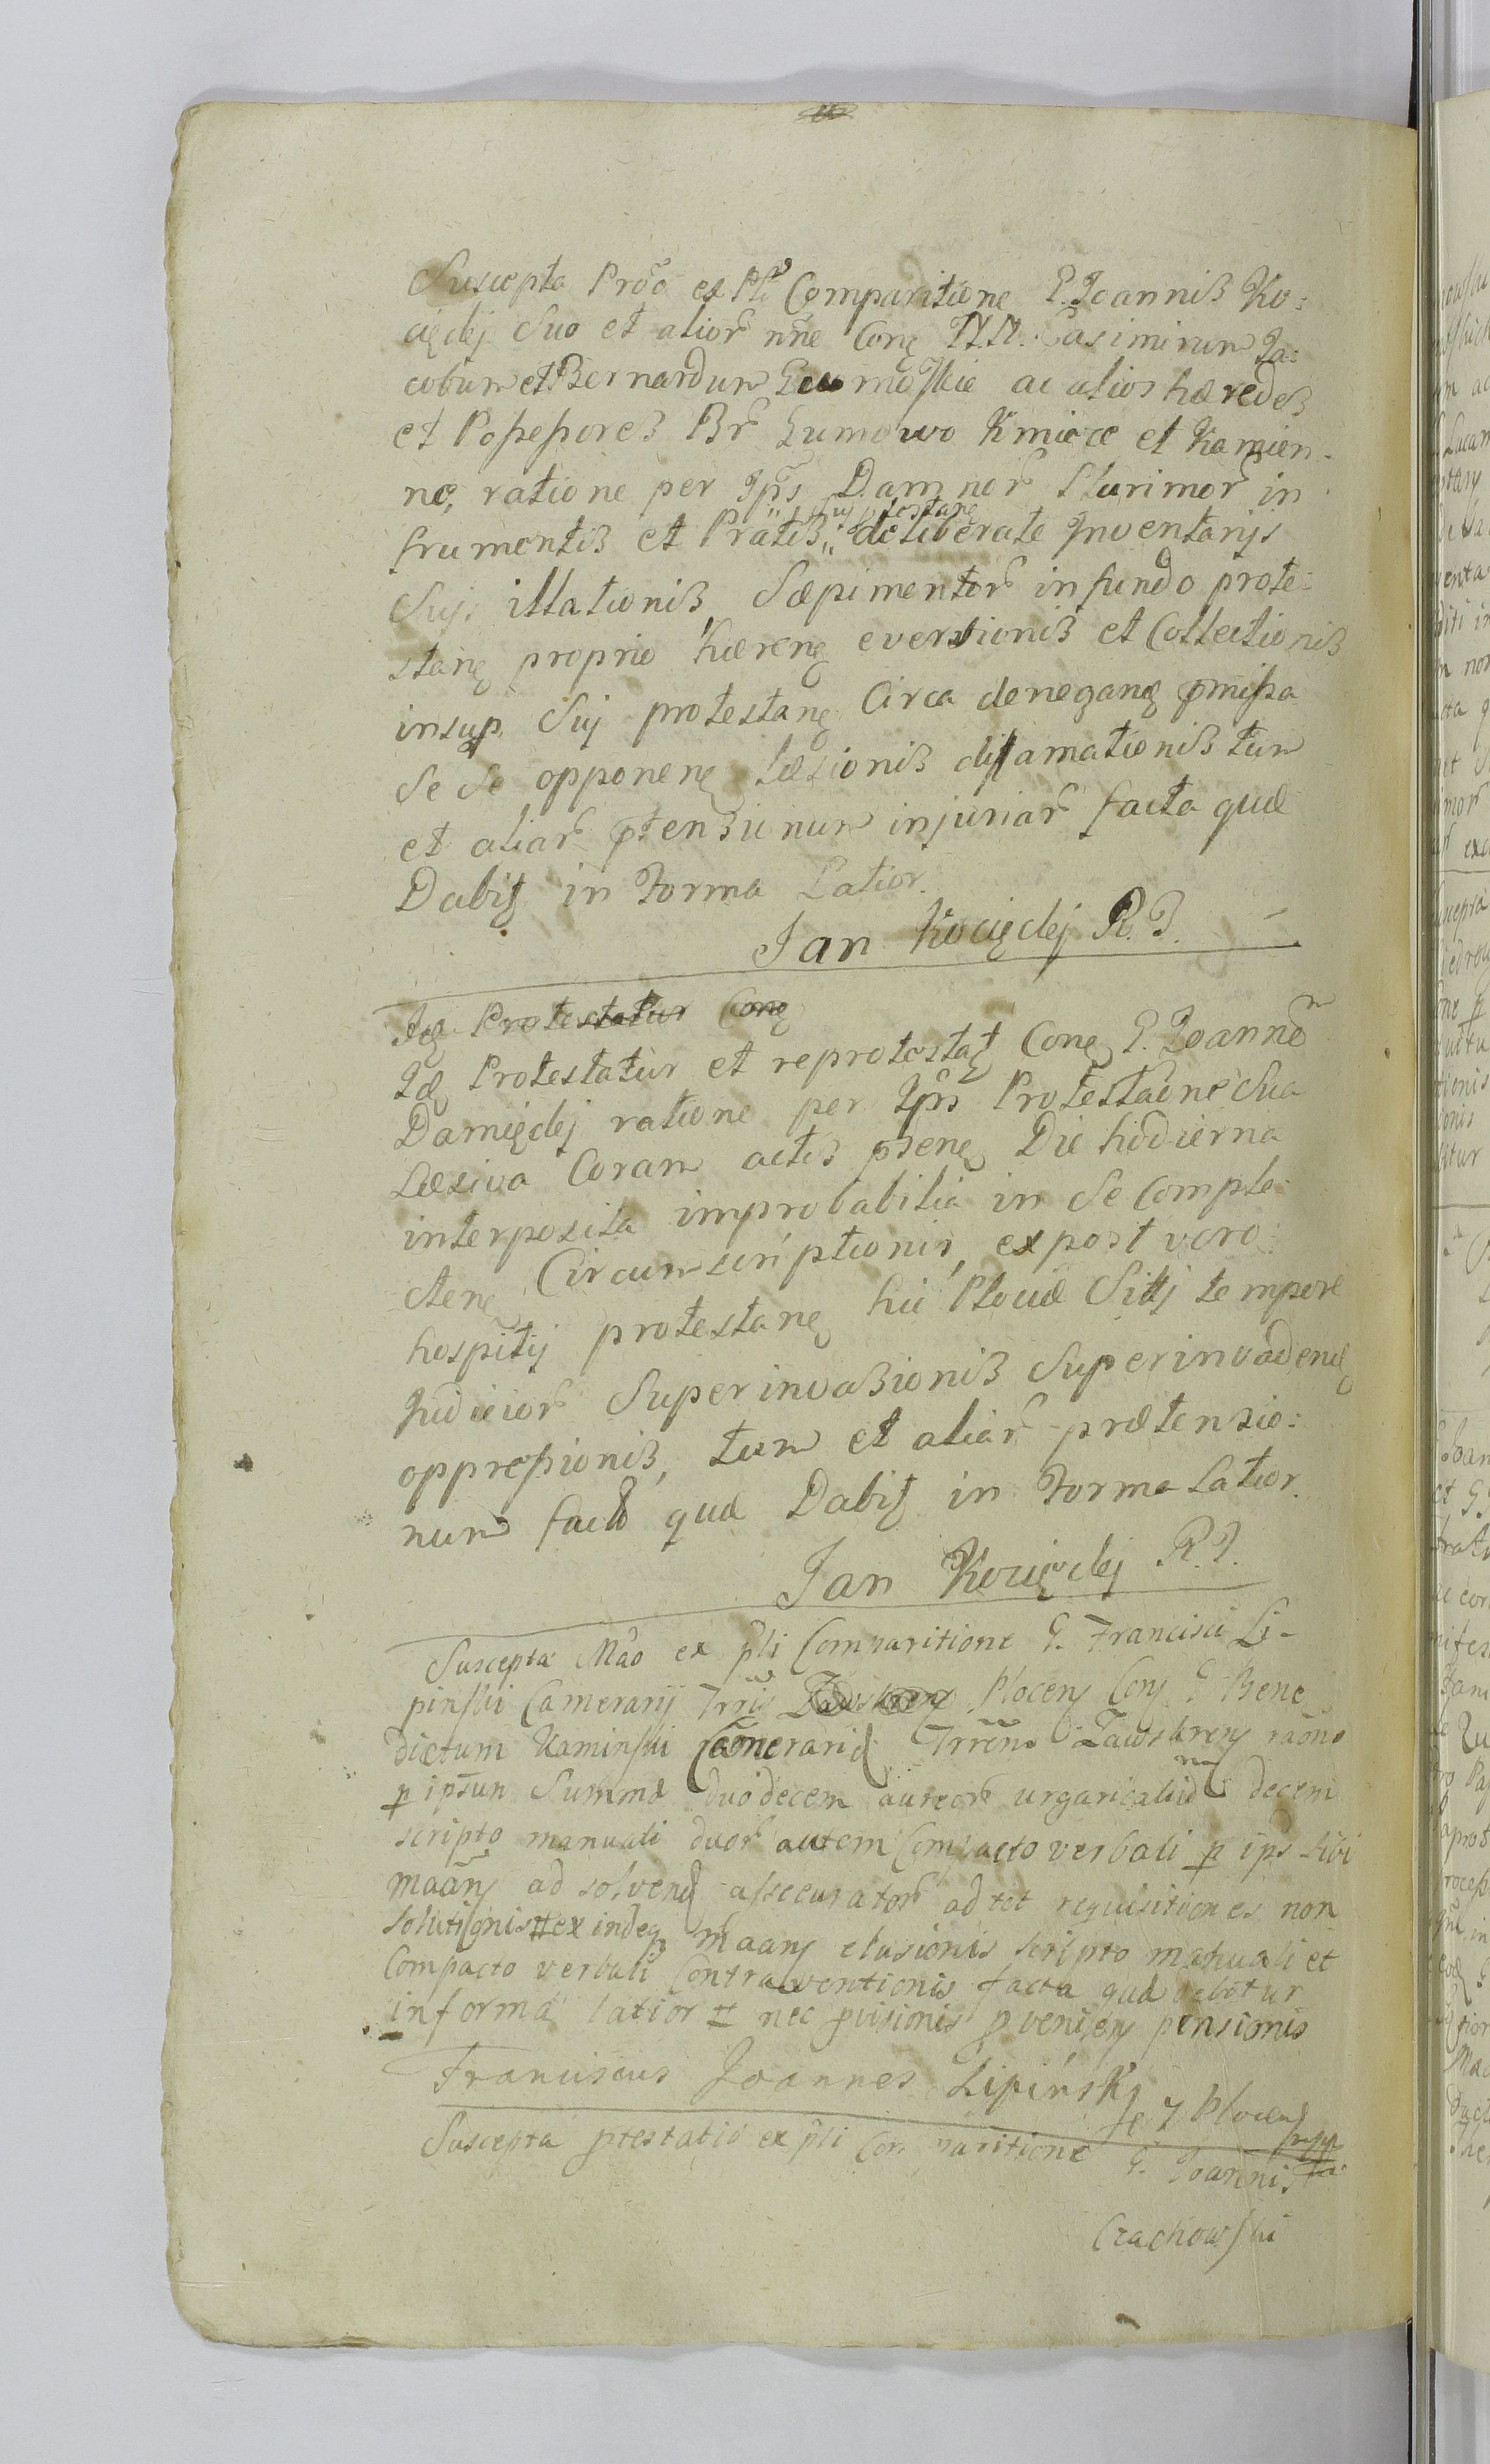 Suscepta Prõo ex Pli Comparitione G. Joannis Ko=
ciędej Suo et alior nne Con N.N. Casimirum Ja=
cobum et Bernardum Gumoskie ac alios hæredes
et Possessores Br Gumowo Kmiece et Kamien-
ne, ratione per Ips Damnor Plurimor in
frumentis et Pratis " suj protestan " deliberate Inventarijs
Suj illationis, Sæpimentor in fundo prote=
stan proprio hæren eversionis et Collectionis
insup Suj protestan Circa denegan pmissa
Se Se opponen læsionis diffamationis tum
et aliar ptensionum injuriar facta quæ
Dabit in Forma Latior.
Jan Kociędej R. P.
Id Protestatur Con
Id Protestatur et reprotestat Con G. Joannem
Damiędej ratione per Ips Protestaõne Sua
Læsiva Coram actis psen Die hodierna
interposita improbabilia in Se Comple=
cten Circumscriptionis, expost vero
hospitij protestan hic Plociæ Sitj tempore
Judicior Superinvasionis Superinvaden
oppressionis, tum et aliar prætensio=
num facto quæ Dabit in Forma Latior.
Jan Kociędej R. P.
Suscepta Mão ex pli Comparitione G. Francisci Li-
pinski Camerarij Trris Zawskren Plocen Con G. Bene
dictum Kaminski Camerarid Trren Zawskren raõne
p ipsum Summæ duodecem aureor ungaricalium decem
scripto manuali duor autem Compacto verbali p ips sibi
maan ad solvend assecurator ad tot requisitiones non
solutionis # exindeq maan elusionis scripto manuali et
Compacto verbali Contraventionis facta quæ dabitur
in forma latior # nec pvisionis pvenien pensionis
Franciscus Joannes Lipiński
C T Plocens mpp
Suscepta ptestatio ex pli Comparitione G. Joannis
Czachowski